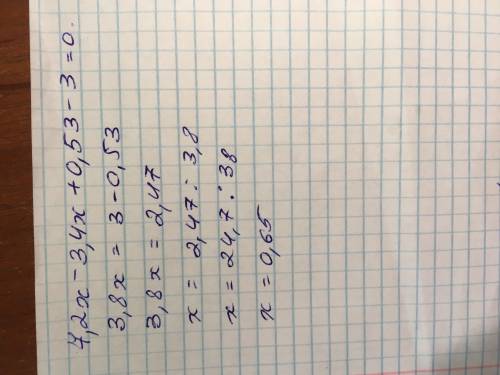 7,2x - 3,4x + 0,53 - 3 = 0.
3,8x = 3 - 0,53
3,8x = 2,47
x = 2,47 : 3,8
x = 24,7 : 38
x = 0,65